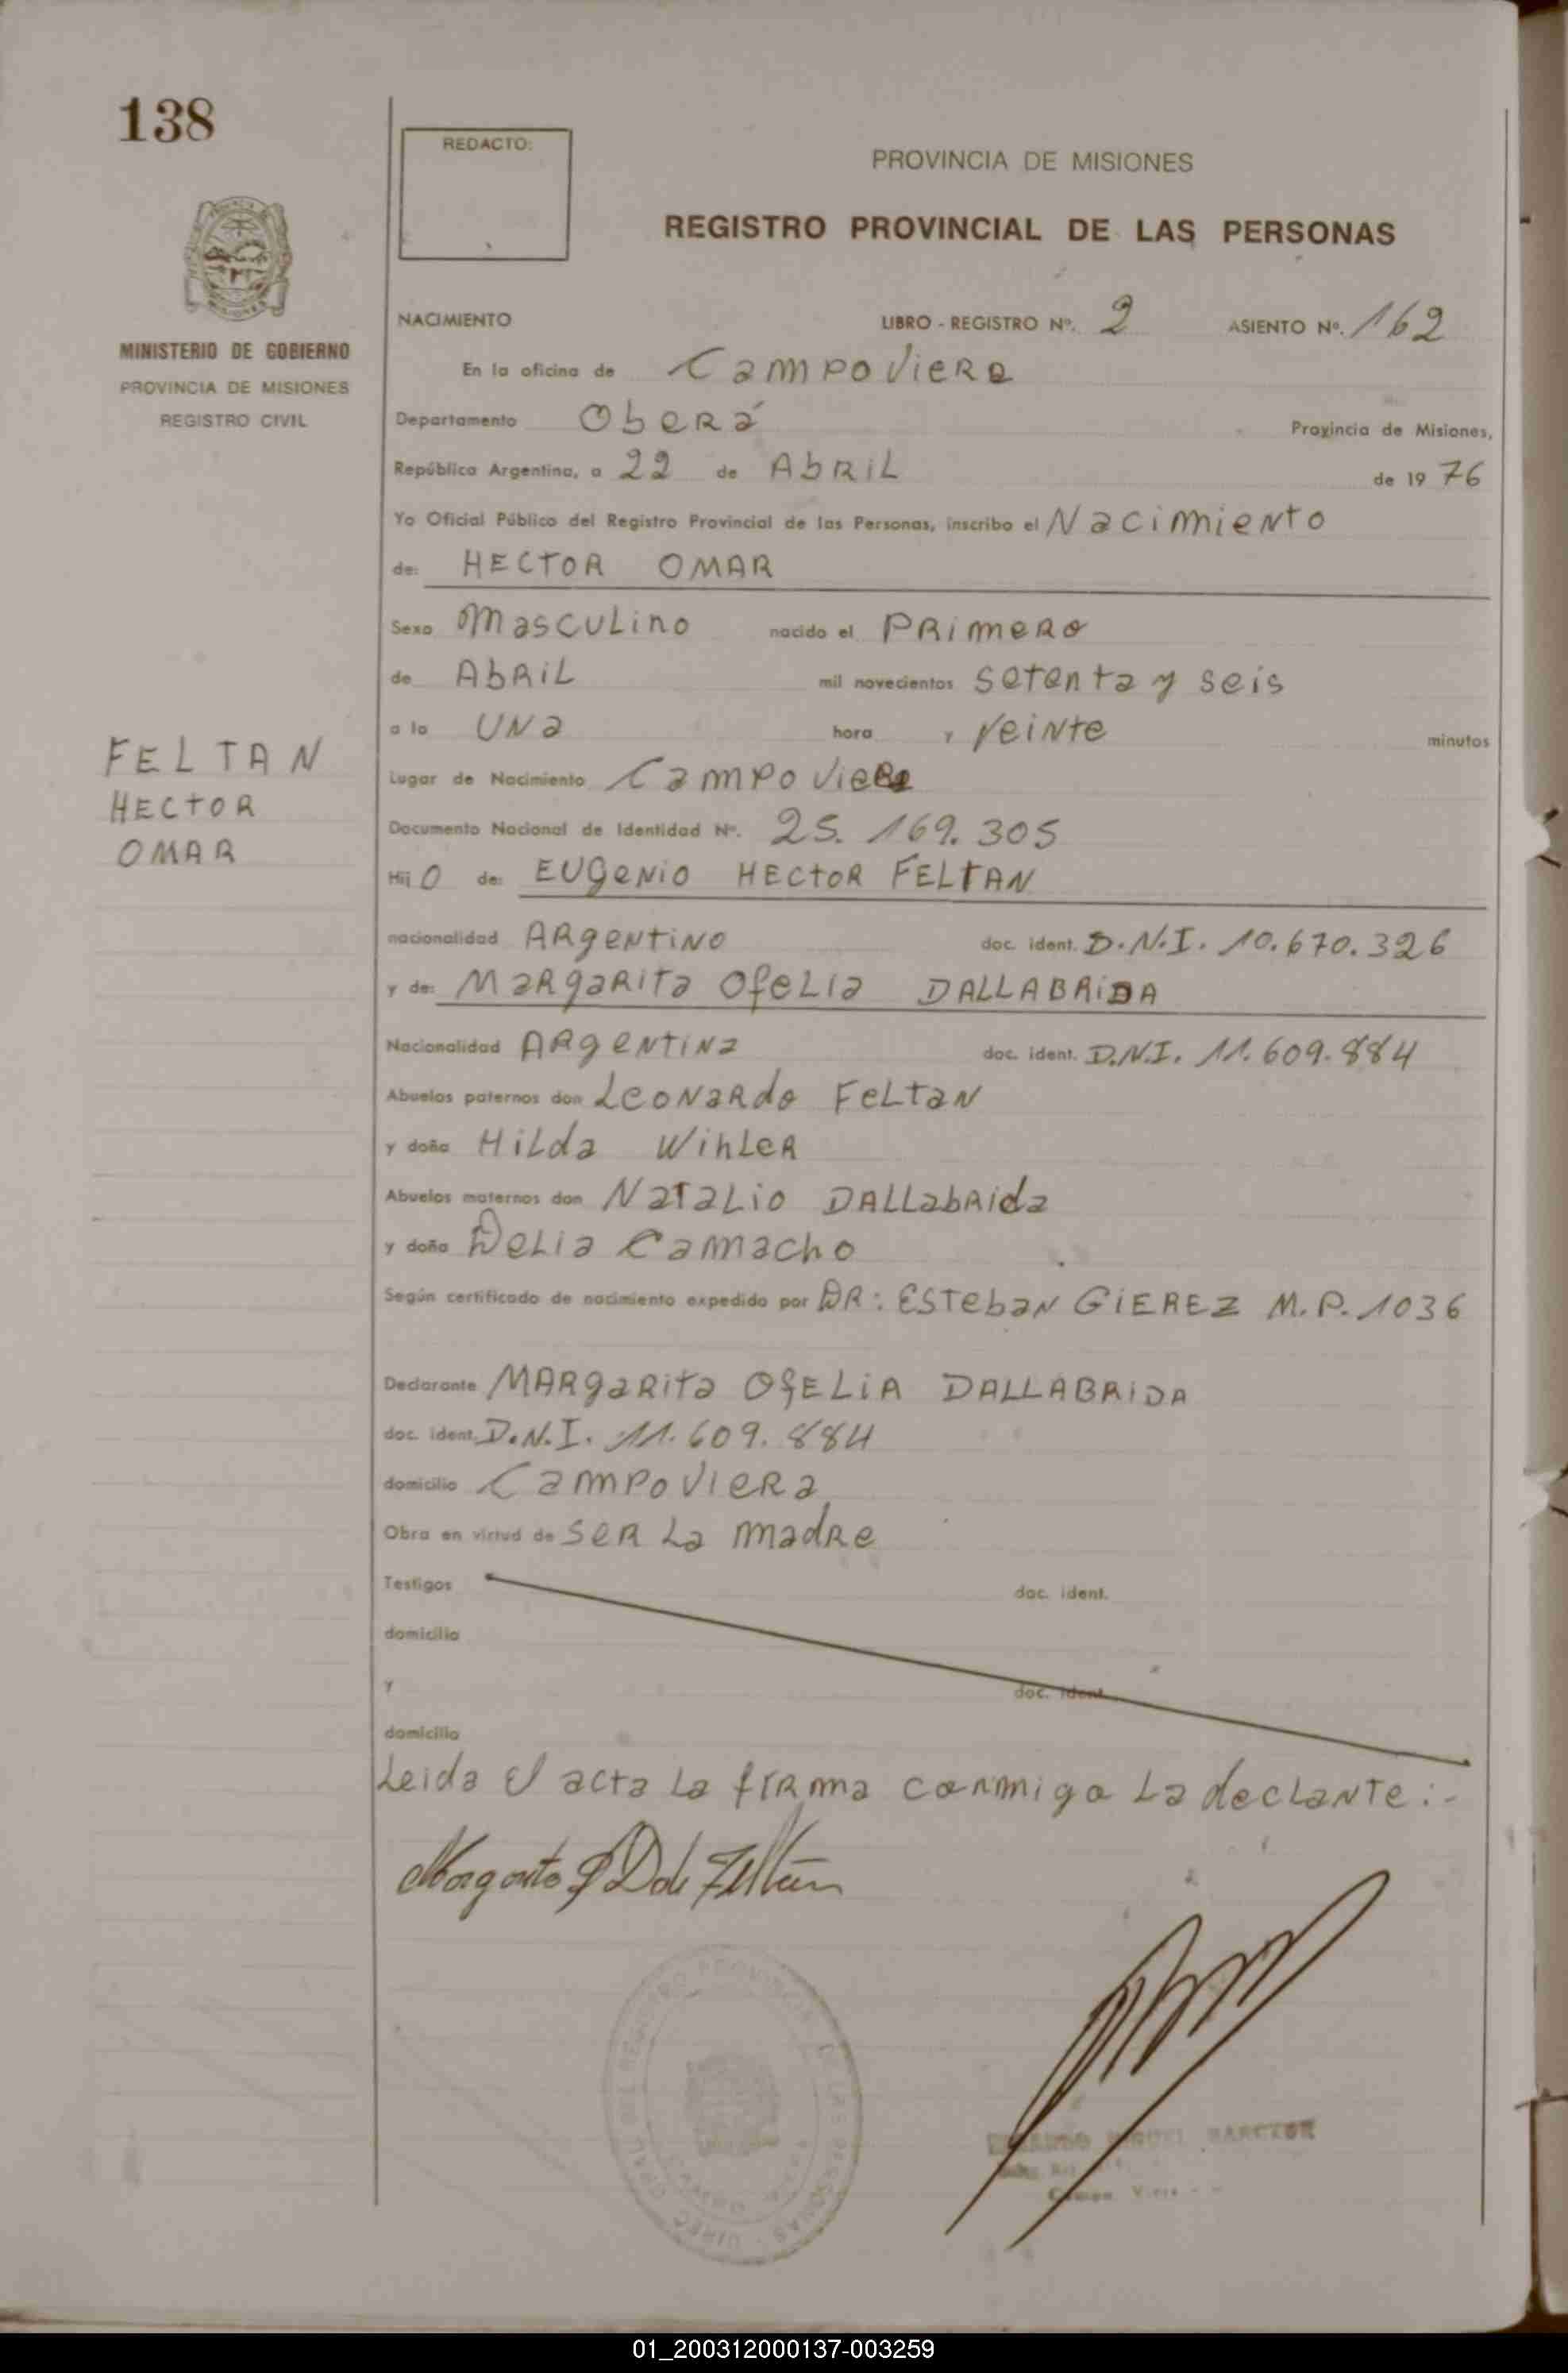 138
REDACTO:
PROVINCIA DE MISIONES
REGISTRO PROVINCIAL DE LAS PERSONAS
MINISTERIO DE GOBIERNO
PROVINCIA DE MISIONES
REGISTRO CIVIL
NACIMIENTO LIBRO - REGISTRO Nº. 2 ASIENTO Nº. 162
En la oficina de Campo Viera
Departamento Oberá Provincia de Misiones,
República Argentina, a 22 de Abril de 1976
Yo Oficial Público del Registro Provincial de las Personas, inscribo el Nacimiento
de: HECTOR OMAR
Sexo Masculino nacido el Primero
de Abril mil novecientos setenta y seis
a la una hora y veinte minutos
FELTAN
HECTOR
OMAR
Lugar de Nacimiento Campo Viera
Documento Nacional de Identidad Nº. 25.169.305
Hijo de: Eugenio HECTOR FELTAN
nacionalidad Argentino doc. ident. D.N.I. 10.670.326
y de: Margarita Ofelia DALLABRIDA
Nacionalidad Argentina doc. ident. D.N.I. 11.609.884
Abuelos paternos don Leonardo Feltan
y doña Hilda Wihler
Abuelos maternos don Natalio Dallabrida
y doña Delia Camacho
Según certificado de nacimiento expedido por DR: Esteban GIEREZ M.P. 1036
Declarante Margarita Ofelia DALLABRIDA
doc. ident. D.N.I. 11.609.884
domicilio Campo Viera
Obra en virtud de ser la madre
Testigos doc. ident.
domicilio
y doc. ident.
domicilio
Leida el acta la firma conmigo la declante:-
MIGUEL
Campo Viera
01_200312000137-003259